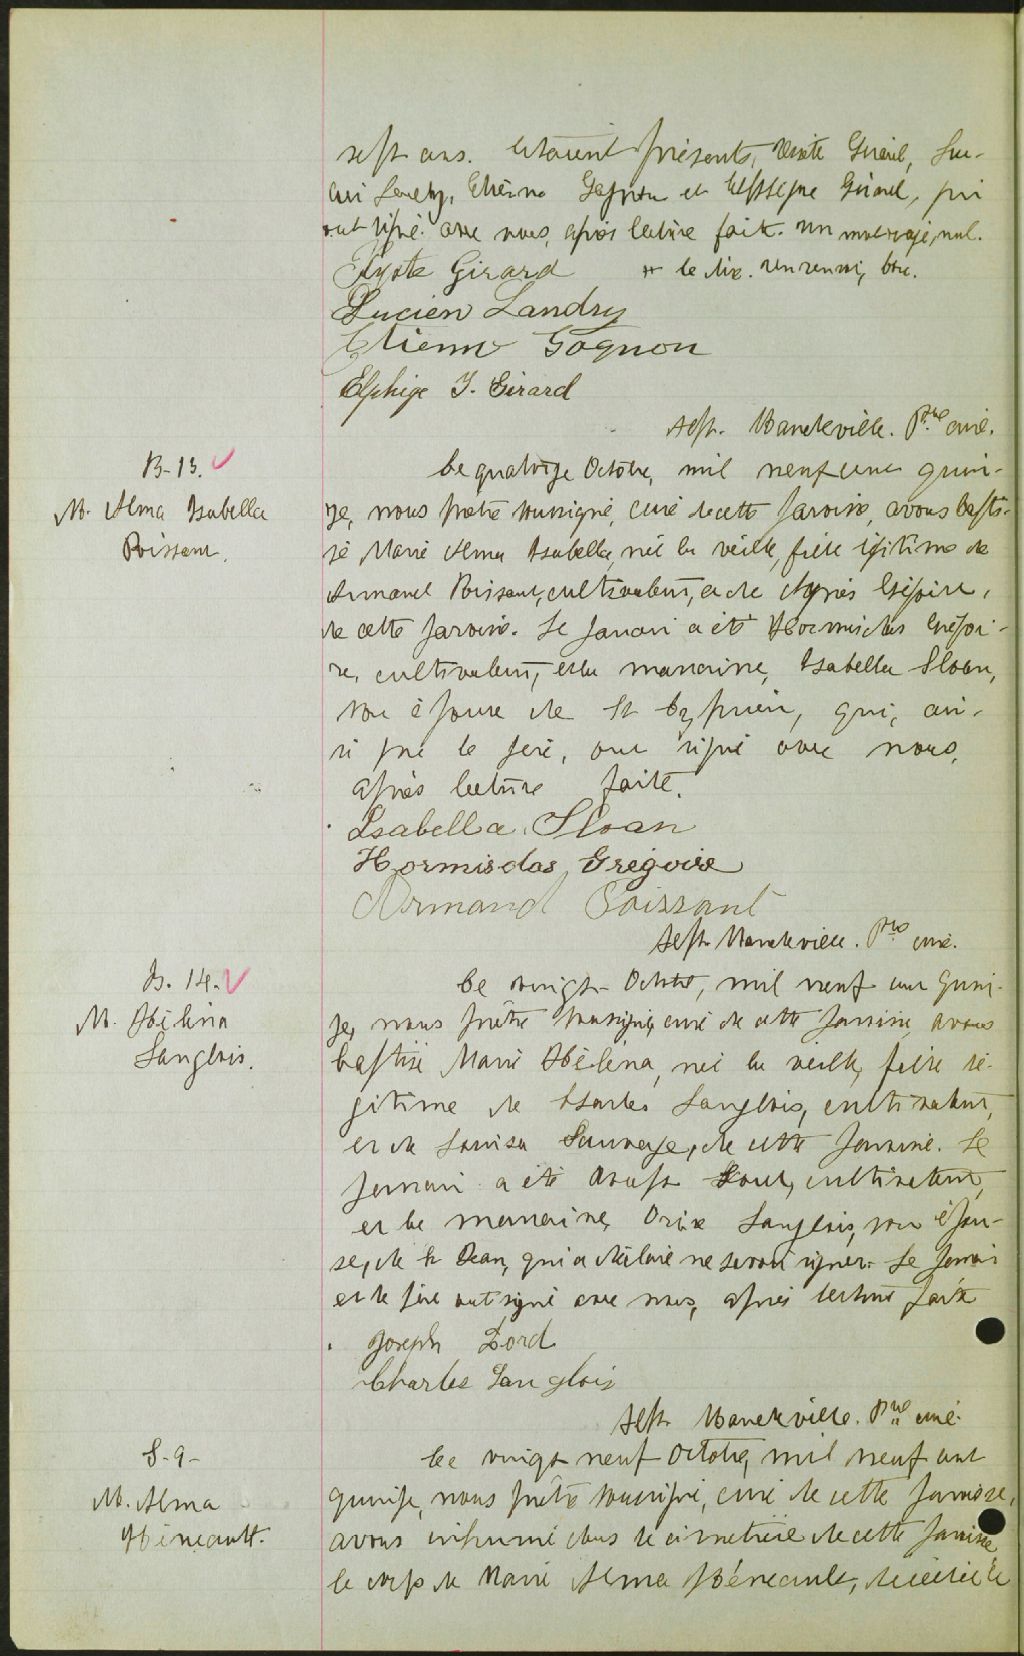 sept ans. Etaient présents, Xyste Girard, Lu-
cien Landry, Etienne Gagnon et Elphège Girard, qui
ont signé avec nous, après lecture faite. Un mot rayé, nul.
Xyste Girard # le dix. Un renvoi, bon.
Lucien Landry
Etienne Gagnon
Elphège J. Girard
Alph. Mandeville. Ptre curé.
B-13.
M. Alma Isabella
Poissant.
Le quatorze Octobre, mil neuf cent quin-
ze, nous prêtre soussigné, curé de cette paroisse, avons bapti-
sé Marie Alma Isabella, née la veille, fille légitime de
Armand Poissant, cultivateur, et de Agnès Grégoire,
de cette paroisse. Le parrain a été Hormisdas Grégoi-
re, cultivateur, et la marraine, Isabella Sloan,
son épouse de St Cyprien, qui, ain-
si que le père, ont signé avec nous,
après lecture faite.
Isabella Sloan
Hormisdas Grégoire
Armand Poissant
Alph Mandeville. Ptre curé.
B. 14.
M. Héléna
Langlois.
Le vingt Octobre, mil neuf cent quin-
ze, nous prêtre soussigné, curé de cette paroisse, avons
baptisé Marie Héléna, née la veille, fille lé-
gitime de Charles Langlois, cultivateur,
et de Louisa Sauvage, de cette paroisse. Le
parrain a été Joseph Lord, cultivateur,
et la marraine, Langlois, son épou-
se, de St Jean, qui a déclaré ne savoir signer. Le parrain
et le père ont signé avec nous, après lecture faite
Joseph Lord
Charles Langlois
Alph Mandeville. Ptre curé.
S-9-
M. Alma
Héneault.
Le vingt neuf Octobre, mil neuf cent
quinze, nous prêtre soussigné, curé de cette paroisse,
avons inhumé dans le cimetière de cette paroisse
le corps de Marie Alma Héneault, décédée le